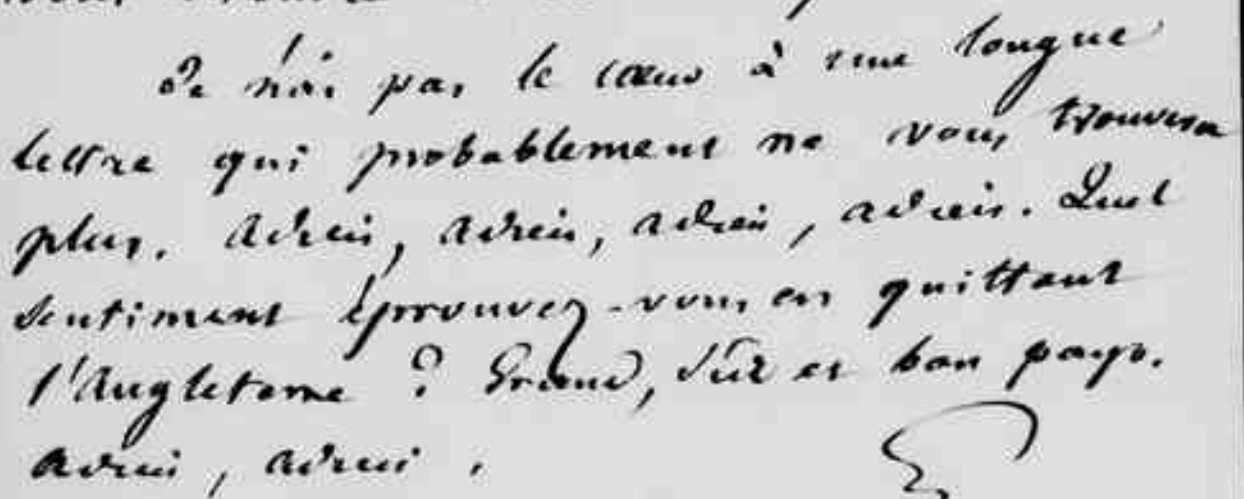 Je n'ai pas le cœur à une longue
lettre qui probablement ne vous trouvera
plus. Adieu, adieu, adieu, adieu. Quel
sentiment éprouvez-vous en quittant
l'Angleterre ? Grand, sûr et bon pays.
Adieu, adieu.